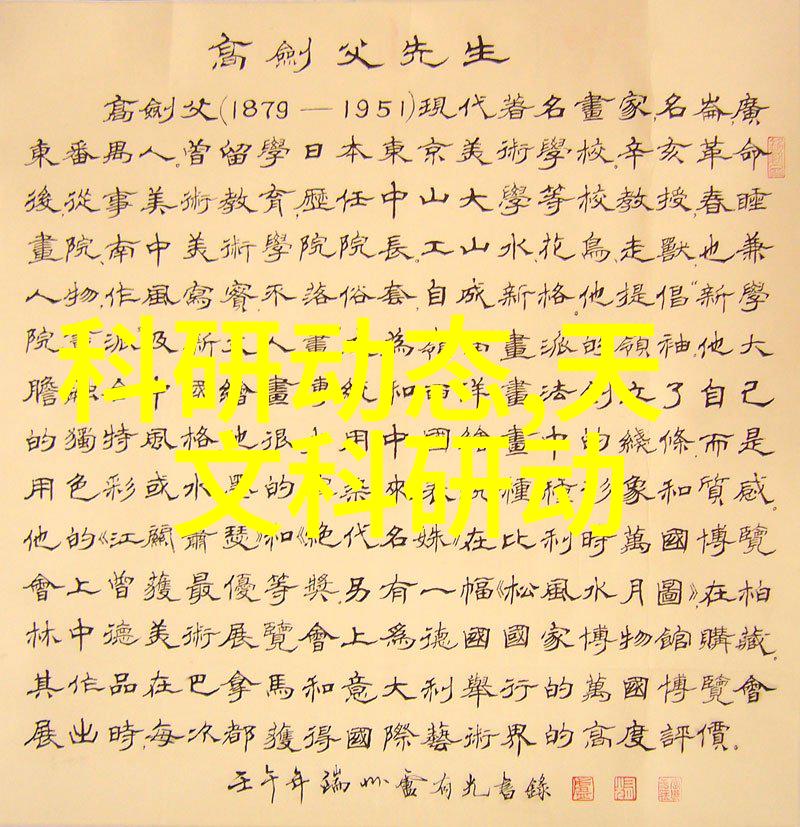 高劍父先生
高劍父(1879—1951)現代著名畫家,名崙,廣
東番禺人。曾留學日本東京美術學校。辛亥革命
後,從事美術教育,歷任中山大學等校教授,春睡
畫院、南中美術學院院長。工山水、花鳥、走獸,也兼
人物,作風寫實,不落俗套,自成新格。他提倡“新學
院 派 及 新文人畫 為嶺南畫派的領袖。他大
膽融合中國繪畫傳統和西洋畫法創立了自己
的獨特風格。他很 用中國繪畫中的綫條,而是
用色彩或水墨的 染來表現種種形象和質感。
他的《江關蕭瑟》和《絕代名姝》在比利時萬國博覽
會上曾獲最優等獎。另有一幅《松風水月圖》,在柏
林中德美術展覽會上為德國國家博物館購藏。
其作品在巴拿馬和意大利舉行的萬國博覽會
展出時,每次都獲得國際藝術界的高度評價。
壬午年瑞州盧有光書錄
科研动态,天
文科研动